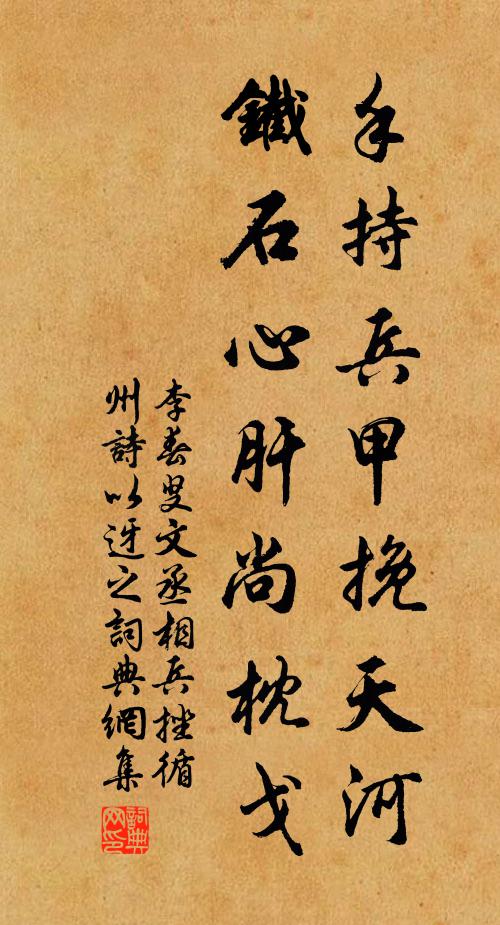 手持兵甲挽天河
鐵石心肝尚枕戈
李春叟文丞相兵挫循
州詩以迓之詞典網集
詞典
网印